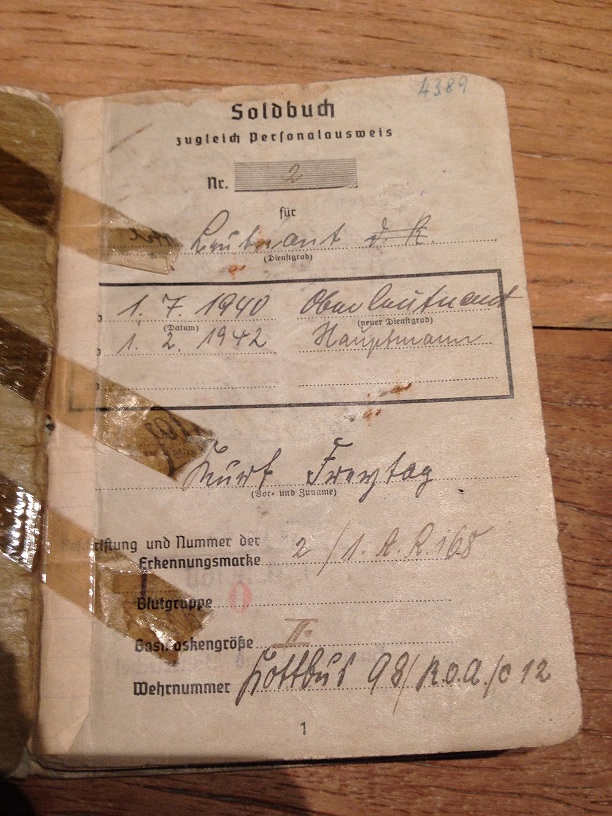 4389
Soldbuch
zugleich Personalausweis
Nr. 2
für
Leutnant d. R.
(Dienstgrad)
1. 7. 1940 Oberleutnant
(Datum) (neuer Dienstgrad)
1. 2. 1942 Hauptmann
Kurt Freytag
(Vor- und Zuname)
und Nummer der
Erkennungsmarke 2/1. A. R. 168
Blutgruppe 0
Gasmaskengröße II.
Wehrnummer Kottbus 98/R.O.A./c 12
1